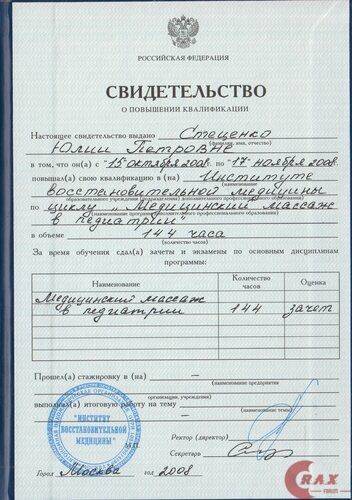 РОССИЙСКАЯ ФЕДЕРАЦИЯ
СВИДЕТЕЛЬСТВО
О ПОВЫШЕНИИ КВАЛИФИКАЦИИ
Настоящее свидетельство выдано Стеценко
(фамилия, имя, отчество)
Юлии Петровне
в том, что он(а) с "15 октября 2008. по "17" ноября 2008.
повышал(а) свою квалификацию в (на) Институте
(наименование
восстановительной медицины
образовательного учреждения (подразделения) дополнительного профессионального образования)
по циклу "Медицинский массаж
(наименование программы дополнительного профессионального образования)
в педиатрии"
в объеме 144 часа
(количество часов)
За время обучения сдал(а) зачеты и экзамены по основным дисциплинам
программы:
Наименование Количество часов Оценка
Медицинский массаж
в педиатрии 144 зачет
Прошел(а) стажировку в (на) –
(наименование предприятия
организации, учреждения)
выполнил(а) итоговую работу на тему –
(наименование темы)
"ИНСТИТУТ
ВОССТАНОВИТЕЛЬНОЙ
МЕДИЦИНЫ"
М.П.
Ректор (директор)
Секретарь
Город Москва год 2008
CRAX
FORUM